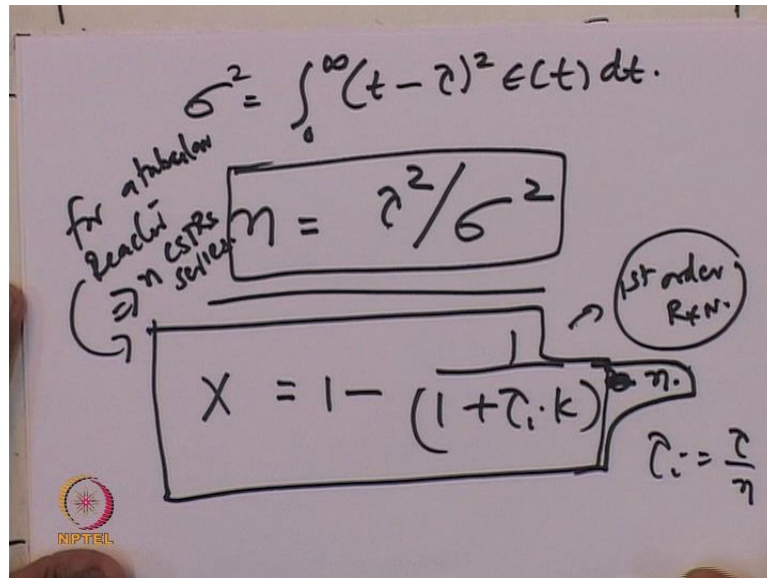 σ² = ∫₀^∞ (t - τ)² E(t) dt.
for a tubular
Reactor
⇒ n CSTRs
series.
n = τ²/σ²
1st order
Rxn.
X = 1 - 1/(1 + τᵢ·k)ⁿ.
τᵢ = τ/n
NPTEL